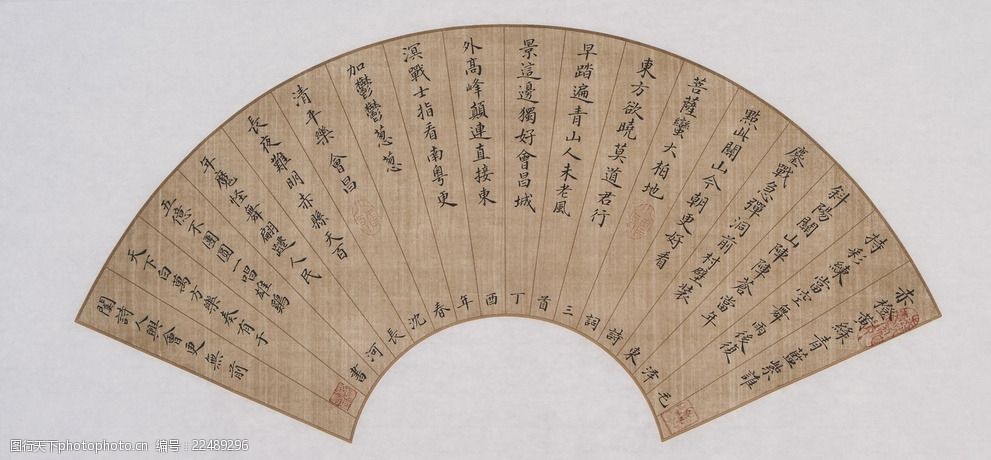 赤橙黃綠青藍紫誰
持彩練當空舞雨後復
斜陽關山陣陣蒼當年
鏖戰急彈洞前村壁裝
點此關山今朝更好看
菩薩蠻大柏地
東方欲曉莫道君行
早踏遍青山人未老風
景這邊獨好會昌城
外高峰顛連直接東
溟戰士指看南粵更
加鬱鬱葱葱
清平樂 會昌
長夜難明赤縣天百
年魔怪舞翩躚人民
五億不團圓一唱雄鷄
天下白萬方樂奏有于
闐詩人興會更無前
毛澤東詩詞三首丁酉年春沈長河書
图行天下photophoto.cn 编号:22489296